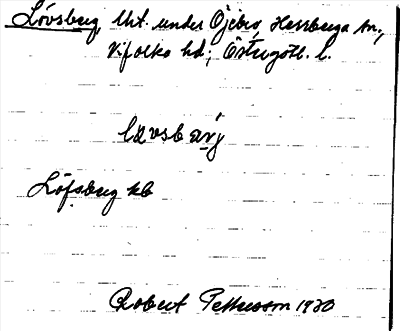 Lövsberg, Uht. under Öjebro, Herrberga sn.,
Vifolka hd; Östergötl. l.
lövsbærj
Löfsberg kb
Robert Pettersson 1930